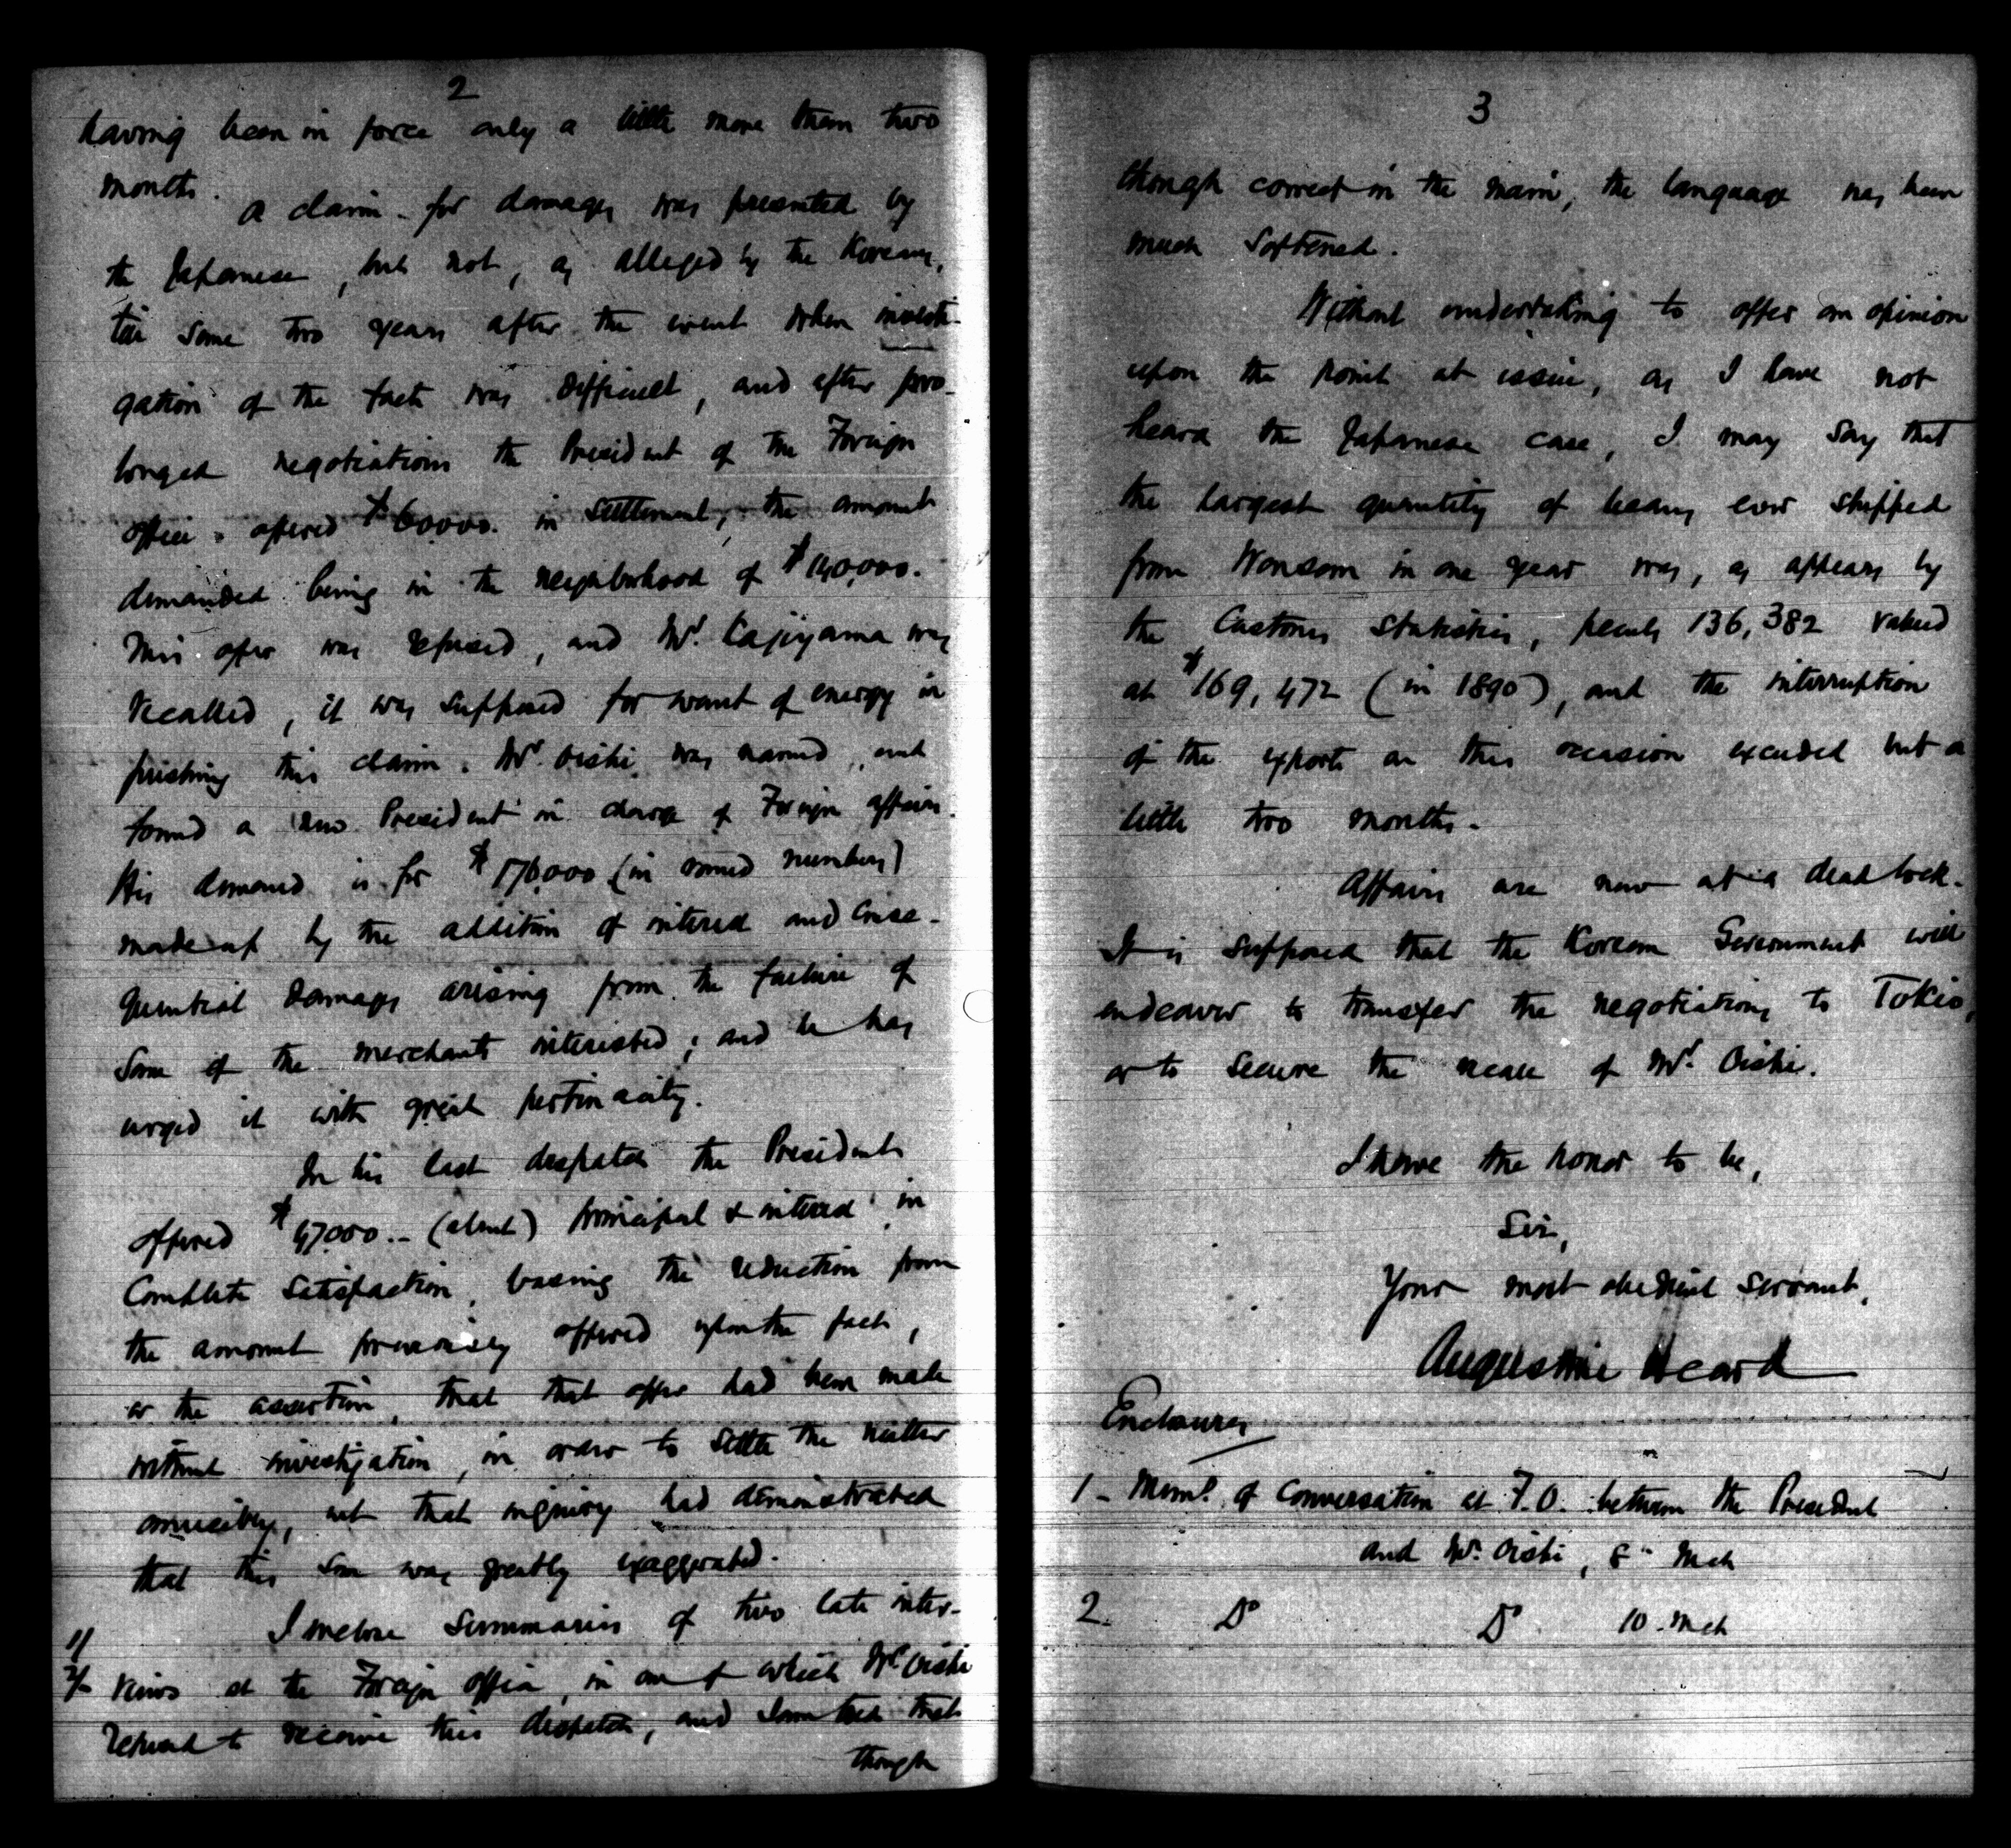 2
having been in force only a little more than two
months.
A claim for damages was presented by
the Japanese, but not, as alleged by the Koreans,
till some two years after the event when investi-
gation of the facts was difficult, and after pro-
longed negotiations the President of the Foreign
Office offered $60000. in settlement, the amount
demanded being in the neighborhood of $140,000.
This offer was refused, and Mr. Kajiyama was
recalled, it was supposed for want of energy in
pushing this claim. Mr. Oishi was named, and
found a new President in charge of Foreign Affairs.
His demand is for $176,000 (in round numbers)
made up by the addition of interest and conse-
quential damages arising from the failure of
some of the merchants interested; and he has
urged it with great pertinacity.
In his last despatch the President
offered $47,000.- (about) principal & interest in
complete satisfaction, basing the reduction from
the amount previously offered upon the fact,
or the assertion, that that offer had been made
without investigation, in order to settle the matter
amicably, but that inquiry had demonstrated
that this sum was greatly exaggerated.
1/ I enclose summaries of two late inter-
2/ views at the Foreign Office, in one of which Mr. Oishi
refused to receive this despatch, and I am told that
though
3
though correct in the main, the language has been
much softened.
Without undertaking to offer an opinion
upon the point at issue, as I have not
heard the Japanese case, I may say that
the largest quantity of beans ever shipped
from Wonsom in one year was, as appears by
the Customs Statistics, peculs 136,382 valued
at $169,472 (in 1890), and the interruption
of the exports on this occasion exceeded but a
little two months.
Affairs are now at a dead lock.
It is supposed that the Korean Government will
endeavor to transfer the negotiations to Tokio,
or to secure the recall of Mr. Oishi.
I have the honor to be,
Sir,
Your most obedient servant,
Augustine Heard
Enclosures
1 - Meml. of Conversation at F.O. between the President
and Mr. Oishi, 8" Mch
2. Do Do 10. Mch